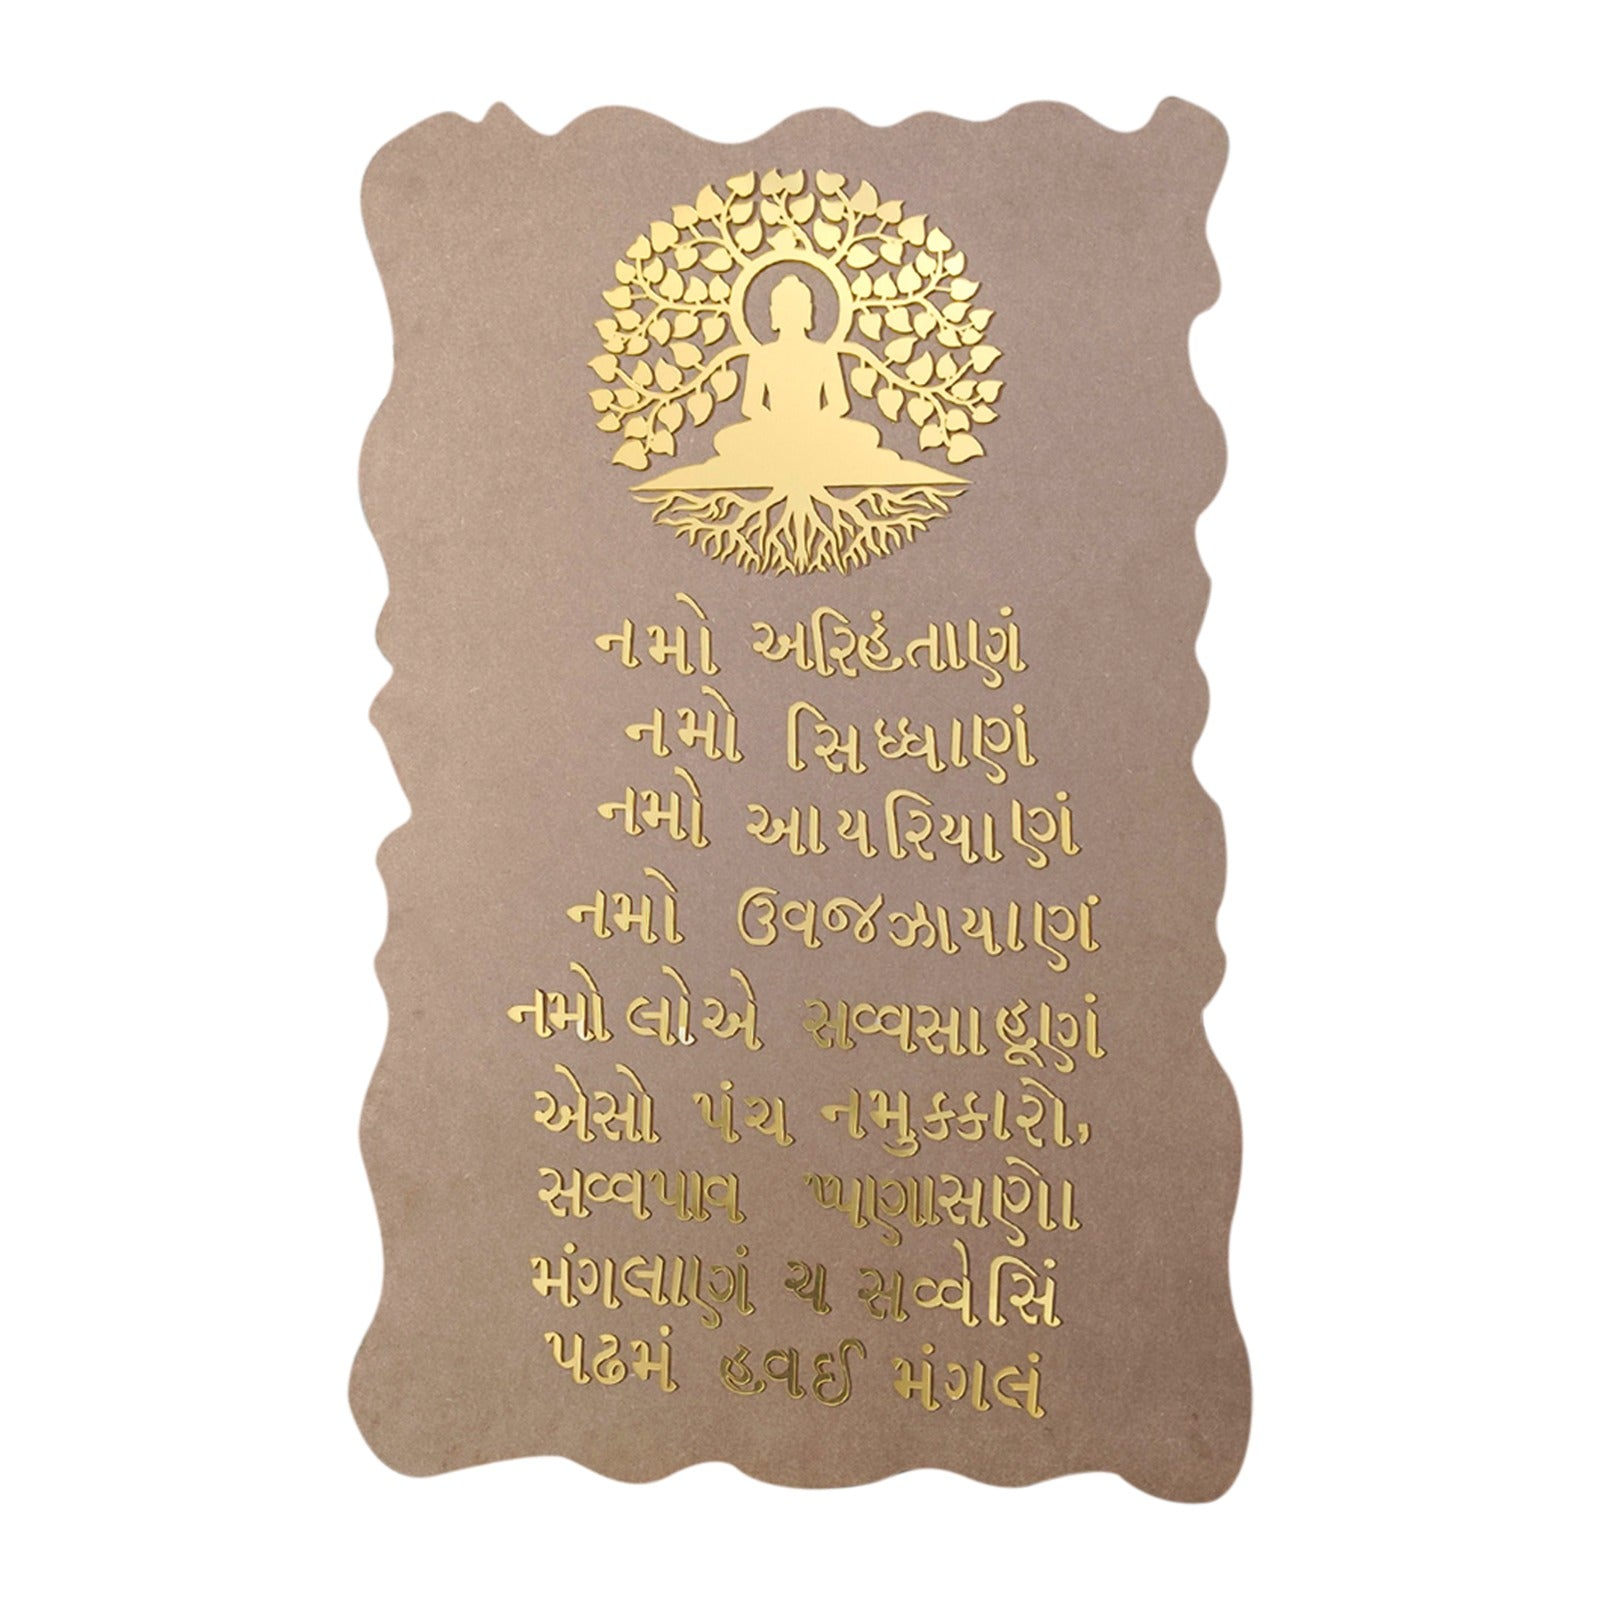 નમો અરિહંતાણં
નમો સિધ્ધાણં
નમો આયરિયાણં
નમો ઉવજઝાયાણં
નમો લોએ સવ્વસાહૂણં
એસો પંચ નમુક્કારો,
સવ્વપાવ પ્પણાસણો
મંગલાણં ચ સવ્વેસિં
પઢમં હવઈ મંગલં